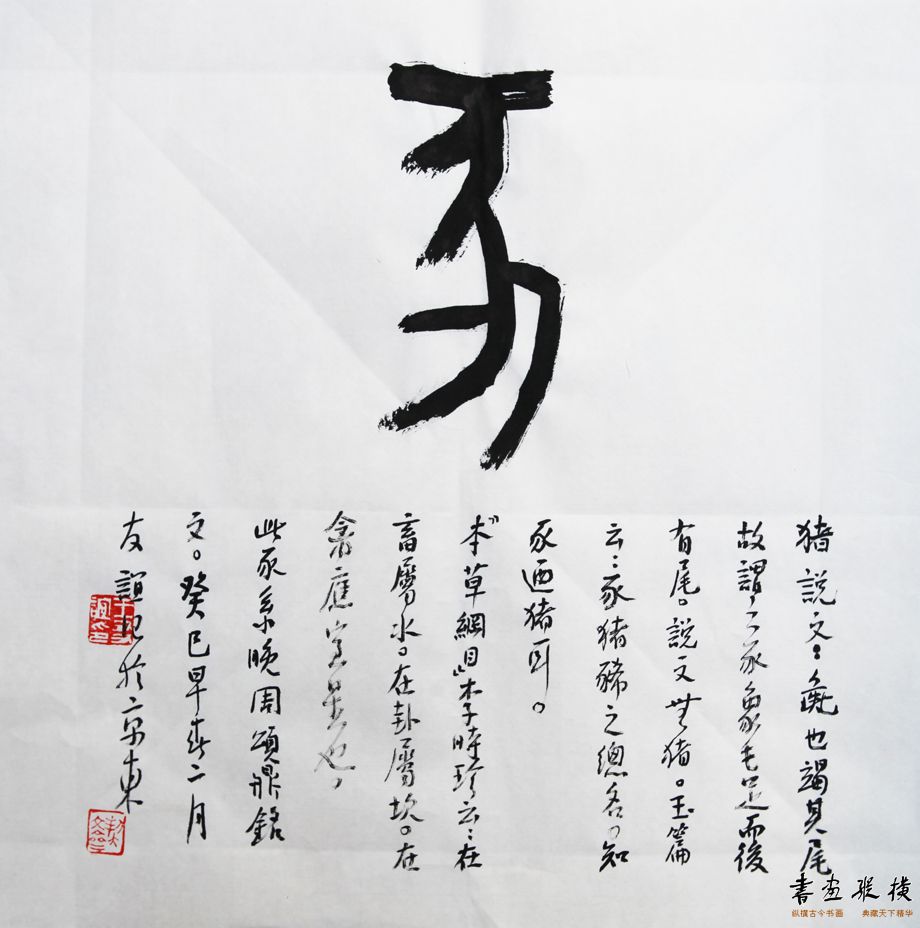 豕
猪說文:彘也竭其尾
故謂之豕象毛足而後
有尾。說文無猪。玉篇
云:豕猪豨之總名。知
豕迺猪耳。
"本草綱目"李時珍云:在
畜屬水。在卦屬坎。在
禽應室星也,
此豕系晚周頌鼎銘
文。癸巳早春二月
友誼記於京東
書画縱橫
纵横古今书画 典藏天下精华